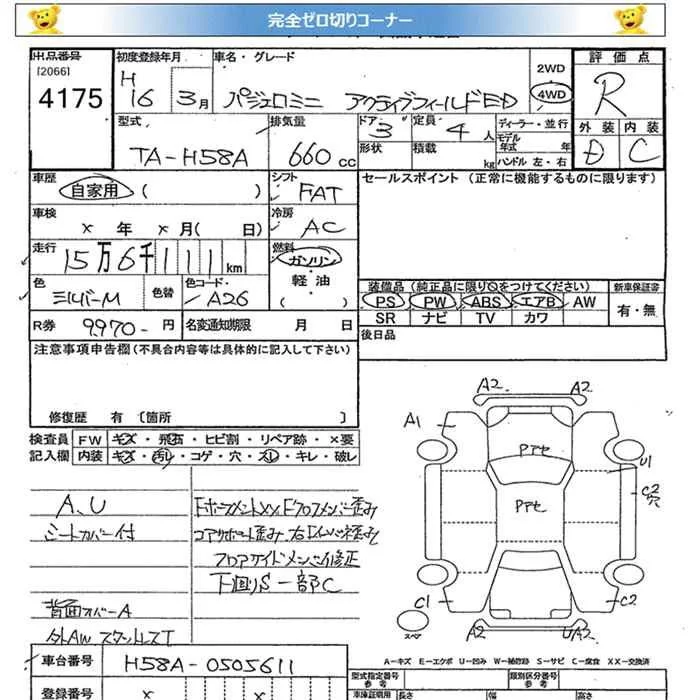 完全ゼロ切りコーナー
出品番号 初度登録年月 車名・グレード 2WD 評価点
[2066]
4175 H 16 3月 パジェロミニ アクティブフィールドED 4WD R
型式 排気量 ドア 3 定員 4人 ディーラー・並行 外装 内装
TA-H58A 660cc 形状 積載 kg モデル年式 年 D C
ハンドル 左・右
車歴 自家用 ( ) シフト FAT セールスポイント (正常に機能するものに限ります)
車検 × 年 × 月( 日) 冷房 AC
走行 15万6千111km 燃料 ガソリン
軽油
( )
色 シルバーM 色替 色コード A26 装備品(純正品に限り○をつけてください) 新車保証書
PS PW ABS エアB AW 有・無
R券 9970-円 名変通知期限 月 日 SR ナビ TV カワ
後日品
注意事項申告欄(不具合内容等は具体的に記入して下さい)
修復歴 有〔箇所 〕
検査員 FW キズ・飛石・ヒビ割・リペア跡・×要
記入欄 内装 キズ・汚れ・コゲ・穴・スレ・キレ・破レ
A、U
シートカバー付
背面カバーA
外AW ステンレスT
FホースメントXX、Fクロスメンバー歪み
コアサポート歪み
フロアサイドメンバー修正
下回りS一部C
A2 A2
A1
Pアセ
U1
Pアセ
C2
穴
C1 C2
スペア
A2 UA2
A-キズ E-エクボ U-凹み W-補修跡 S-サビ C-腐食 XX-交換済
車台番号 H58A-0505611
型式指定番号 類別区分番号
参考 参考
登録番号 × × 車庫証明用 長さ 幅 高さ